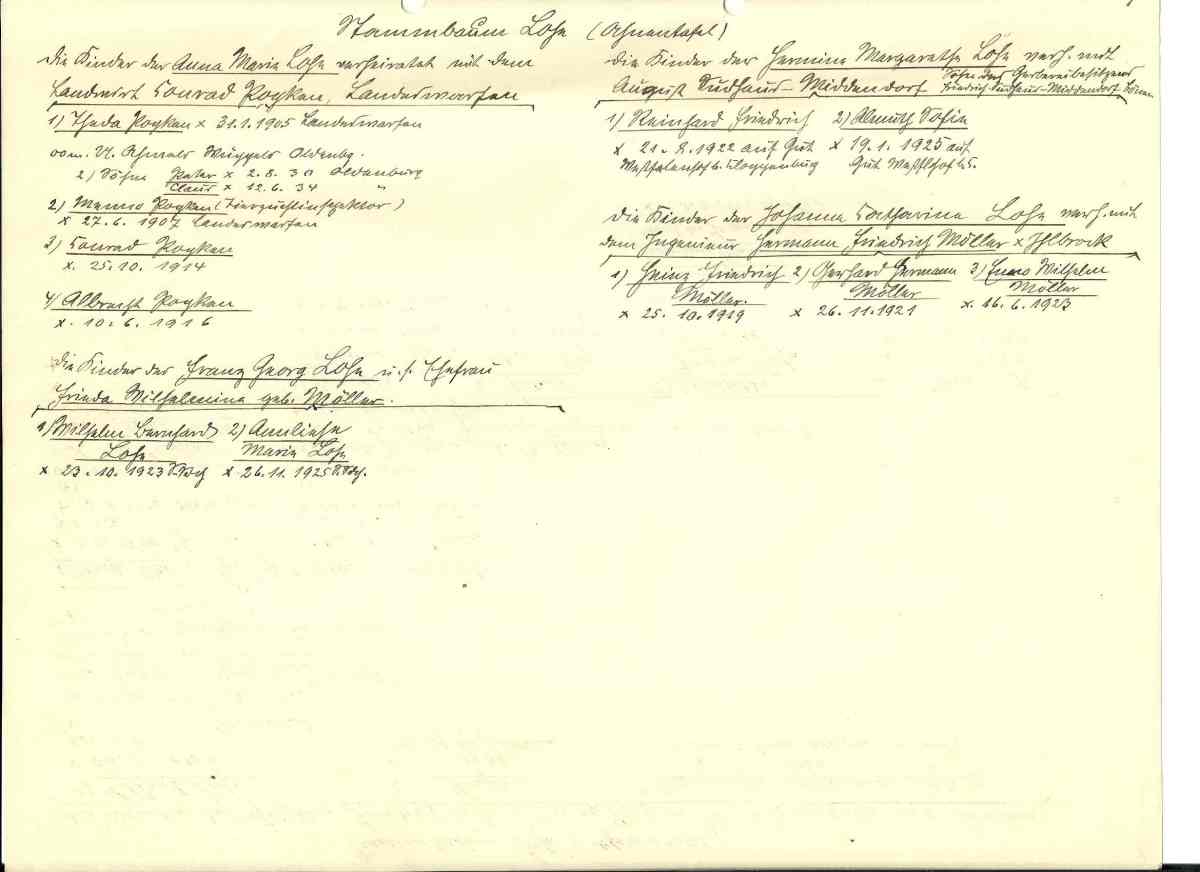 Stammbaum Lohe (Ahnentafel)
die Kinder der Anna Marie Lohe verheiratet mit dem
Landwirt Conrad Poyken, Landeswarfen
1) Theda Poyken x 31.1.1905 Landeswarfen
oom. Ahmels Oldenbg.
2) Söhne Peter x 2.8.30 Oldenburg
Claus x 12.6.34 "
2) Menno Poyken (Tierzuchtinspektor)
x 27.6.1907 Landeswarfen
3) Conrad Poyken
x. 25.10.1914
4) Albrecht Poyken
x. 10.6.1916
die Kinder des Franz Georg Lohe u. s. Ehefrau
Frieda Wilhelmina geb. Möller.
1) Wilhelm Bernhard 2) Annliese
Lohe Marie Lohe
x 23.10.1923 x 26.11.1925
die Kinder der Hermine Margarethe Lohe verh. mit
August Sudhaus-Middendorf Sohn des Gerbereibesitzers
Friedrich Sudhaus-Middendorf
1) Reinhard Friedrich 2) Almuth Sofie
x 21.8.1922 auf Gut x 19.1.1925 auf
Westfalenhof b. Cloppenburg Gut
die Kinder der Johanna Catharina Lohe verh. mit
dem Ingenieur Hermann Friedrich Möller x Ihlbrock
1) Heinz Friedrich 2) Gerhard Hermann 3) Enno Wilhelm
Möller. Möller Möller
x 25.10.1919 x 26.11.1921 x. 16.6.1923